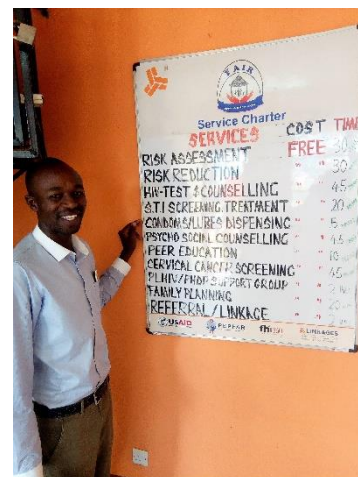 FAIR
Service Charter
SERVICES COST TIME
RISK ASSESSMENT FREE 30
RISK REDUCTION " " 30
HIV-TEST & COUNSELLING " " 45
S.T.I SCREENING, TREATMENT " " 20
CONDOMS/LUBES DISPENSING " " 5
PSYCHO SOCIAL COUNSELLING " " 45
PEER EDUCATION " " 10
CERVICAL CANCER SCREENING " " 45
PLHIV/PHDP SUPPORT GROUP " " 2
FAMILY PLANNING " " 20
REFERRAL/LINKAGE " "
USAID PEPFAR fhi360 LINKAGES